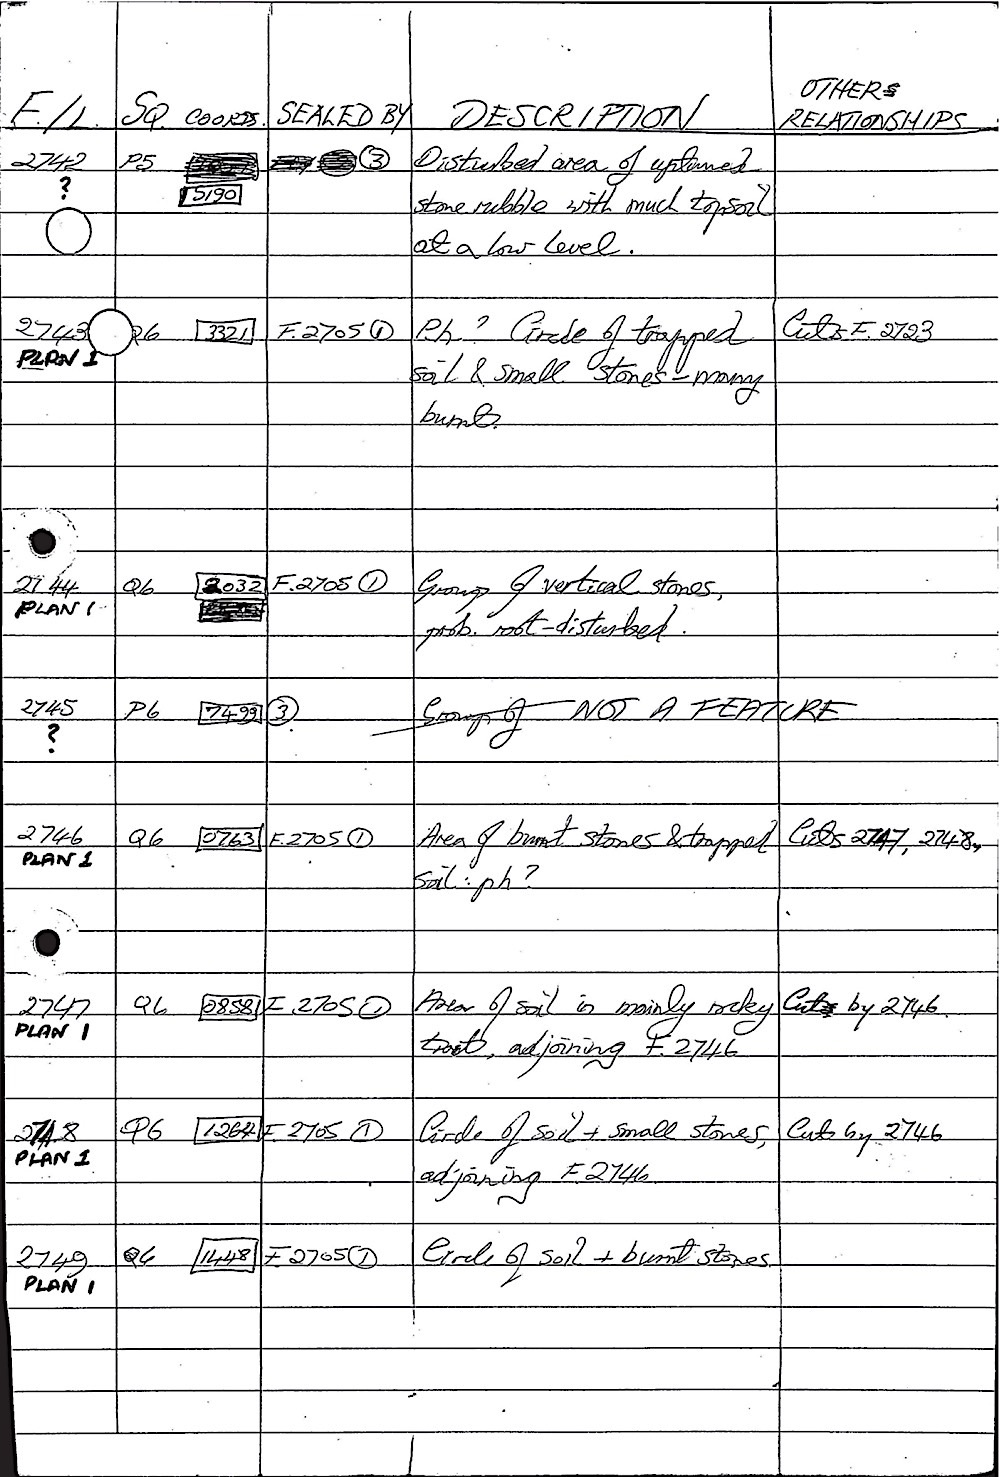 F./L. SQ. COORDS. SEALED BY DESCRIPTION OTHER RELATIONSHIPS
2742 P5 ③ Disturbed area of upturned
? 5190 stone rubble with much topsoil
at a low level.
2743 Q6 3321 F.2705 ① Ph? Circle of trapped Cuts F. 2723
PLAN 1 soil & small stones - many
burnt.
2744 Q6 2032 F.2705 ① Group of vertical stones,
PLAN 1 prob. root-disturbed.
2745 P6 7499 ③ Group of NOT A FEATURE
?
2746 Q6 0763 F.2705 ① Area of burnt stones & trapped Cuts 2747, 2748
PLAN 1 soil: ph?
2747 Q6 0858 F.2705 ① Area of soil in mainly rocky Cut by 2746
PLAN 1 adjoining F.2746
2748 P6 1264 F.2705 ① Circle of soil + small stones, Cut by 2746
PLAN 1 adjoining F.2746
2749 Q6 1448 F.2705 ① Circle of soil + burnt stones.
PLAN 1